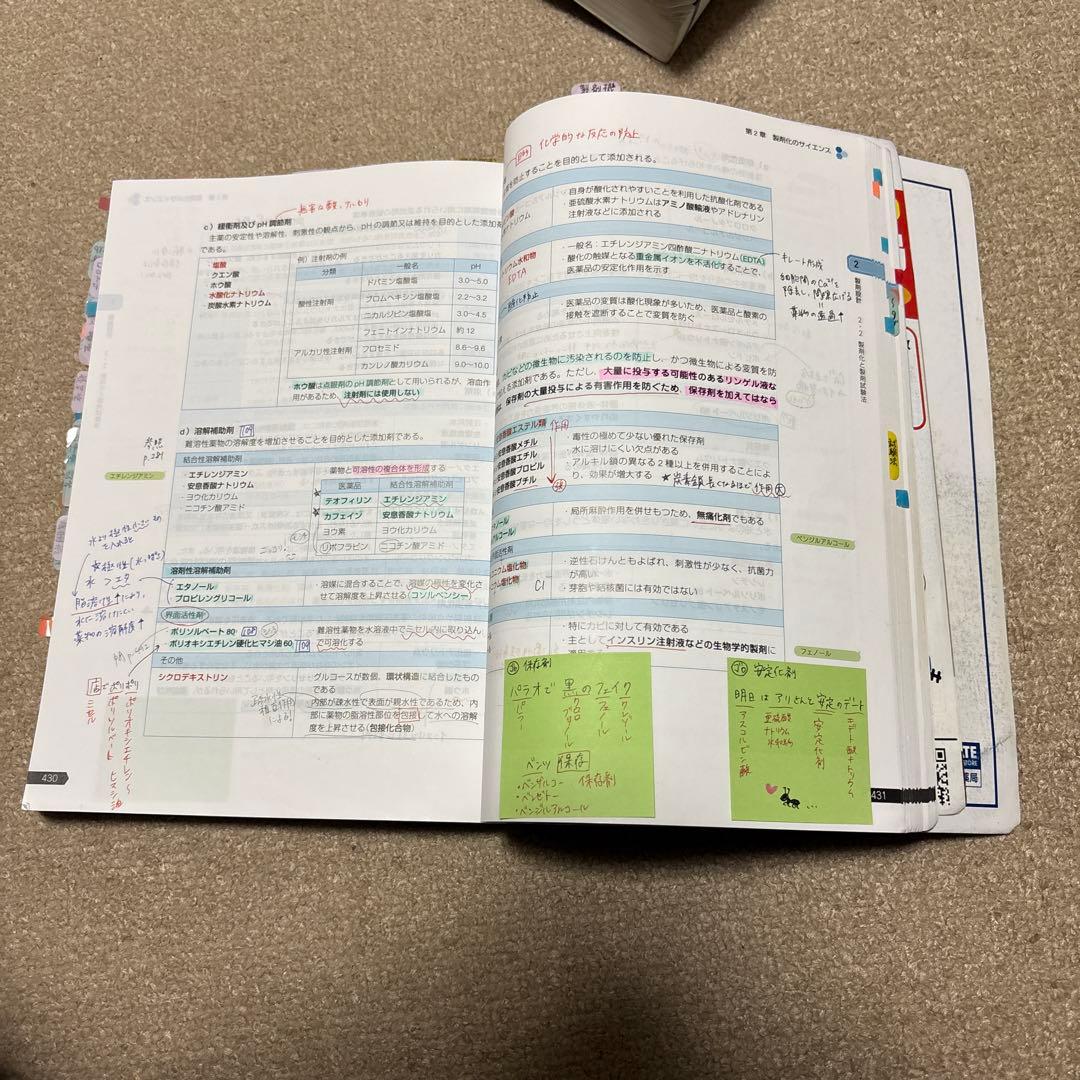 c）緩衝剤及び pH 調節剤
主薬の安定性や溶解性、刺激性の観点から、pH の調節又は維持を目的とした添加剤
である。
・塩酸
・クエン酸
・ホウ酸
・水酸化ナトリウム
・炭酸水素ナトリウム
例）注射剤の例
分類 一般名 pH
酸性注射剤 ドパミン塩酸塩 3.0〜5.0
ブロムヘキシン塩酸塩 2.2〜3.2
ニカルジピン塩酸塩 3.0〜4.5
アルカリ性注射剤 フェニトインナトリウム 約 12
フロセミド 8.6〜9.6
カンレノ酸カリウム 9.0〜10.0
ホウ酸は点眼剤の pH 調節剤として用いられるが、溶血作
用があるため、注射剤には使用しない
d）溶解補助剤 109
難溶性薬物の溶解度を増加させることを目的とした添加剤である。
参照
p.281
エチレンジアミン
結合性溶解補助剤
・エチレンジアミン
・安息香酸ナトリウム
・ヨウ化カリウム
・ニコチン酸アミド
・薬物と可溶性の複合体を形成する
医薬品 結合性溶解補助剤
テオフィリン エチレンジアミン
カフェイン 安息香酸ナトリウム
ヨウ素 ヨウ化カリウム
リボフラビン ニコチン酸アミド
溶剤性溶解補助剤
・エタノール
・プロピレングリコール
・溶媒に混合することで、溶媒の極性を変化さ
せて溶解度を上昇させる（コソルベンシー）
界面活性剤
・ポリソルベート 80
・ポリオキシエチレン硬化ヒマシ油 60 109
・難溶性薬物を水溶液中でミセル内に取り込ん
で可溶化する
その他
シクロデキストリン
・グルコースが数個、環状構造に結合したもの
である
・内部が疎水性で表面が親水性であるため、内
部に薬物の脂溶性部位を包接して水への溶解
度を上昇させる（包接化合物）
水 > エタ
430
製剤化
第 2 章 製剤化のサイエンス
化学的な反応の防止
を防止することを目的として添加される。
・自身が酸化されやすいことを利用した抗酸化剤である
・亜硫酸水素ナトリウムはアミノ酸輸液やアドレナリン
注射液などに添加される
EDTA
・一般名：エチレンジアミン四酢酸二ナトリウム（EDTA）
・酸化の触媒となる重金属イオンを不活化することで、
医薬品の安定化作用を示す
キレート形成
・医薬品の変質は酸化現象が多いため、医薬品と酸素の
接触を遮断することで変質を防ぐ
2
製剤設計
2・2 製剤化と製剤試験法
カビなどの微生物に汚染されるのを防止し、かつ微生物による変質を防
える添加剤である。ただし、大量に投与する可能性のあるリンゲル液な
は、保存剤の大量投与による有害作用を防ぐため、保存剤を加えてはなら
安息香酸エステル類 作用
安息香酸メチル
安息香酸エチル
安息香酸プロピル
安息香酸ブチル
強
・毒性の極めて少ない優れた保存剤
・水に溶けにくい欠点がある
・アルキル鎖の異なる 2 種以上を併用することによ
り、効果が増大する ★炭素鎖長くなるほど作用大
試験法
・局所麻酔作用を併せもつため、無痛化剤でもある
ベンジルアルコール
・逆性石けんともよばれ、刺激性が少なく、抗菌力
が高い
・芽胞や結核菌には有効ではない
・特にカビに対して有効である
・主としてインスリン注射液などの生物学的製剤に
フェノール
保存剤
パラオで 黒の フェイク
ベンツ 保存
・ベンザルコー 保存剤
・ベンゼトー
・ベンジルアルコール
安定化剤
明日は アリさんと 安定の デート
アスコルビン酸
亜硫酸
ナトリウム
安定化剤
431